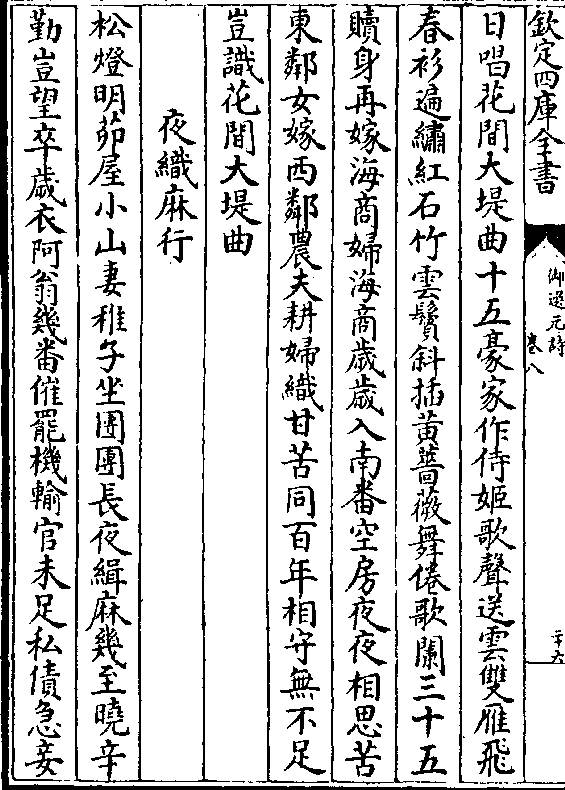 欽定四庫全書
御選元詩
卷八
二十六
日唱花間大堤曲十五豪家作侍姬歌聲送雲雙雁飛
春衫遍繡紅石竹雲鬢斜插黃薔薇舞倦歌闌三十五
贖身再嫁海商婦海商歲歲入南番空房夜夜相思苦
東鄰女嫁西鄰農夫耕婦織甘苦同百年相守無不足
豈識花間大堤曲
夜織麻行
松燈明茆屋小山妻稚子坐團團長夜緝麻幾至曉辛
勤豈望卒歲衣阿翁幾番催罷機輸官未足私債急妾